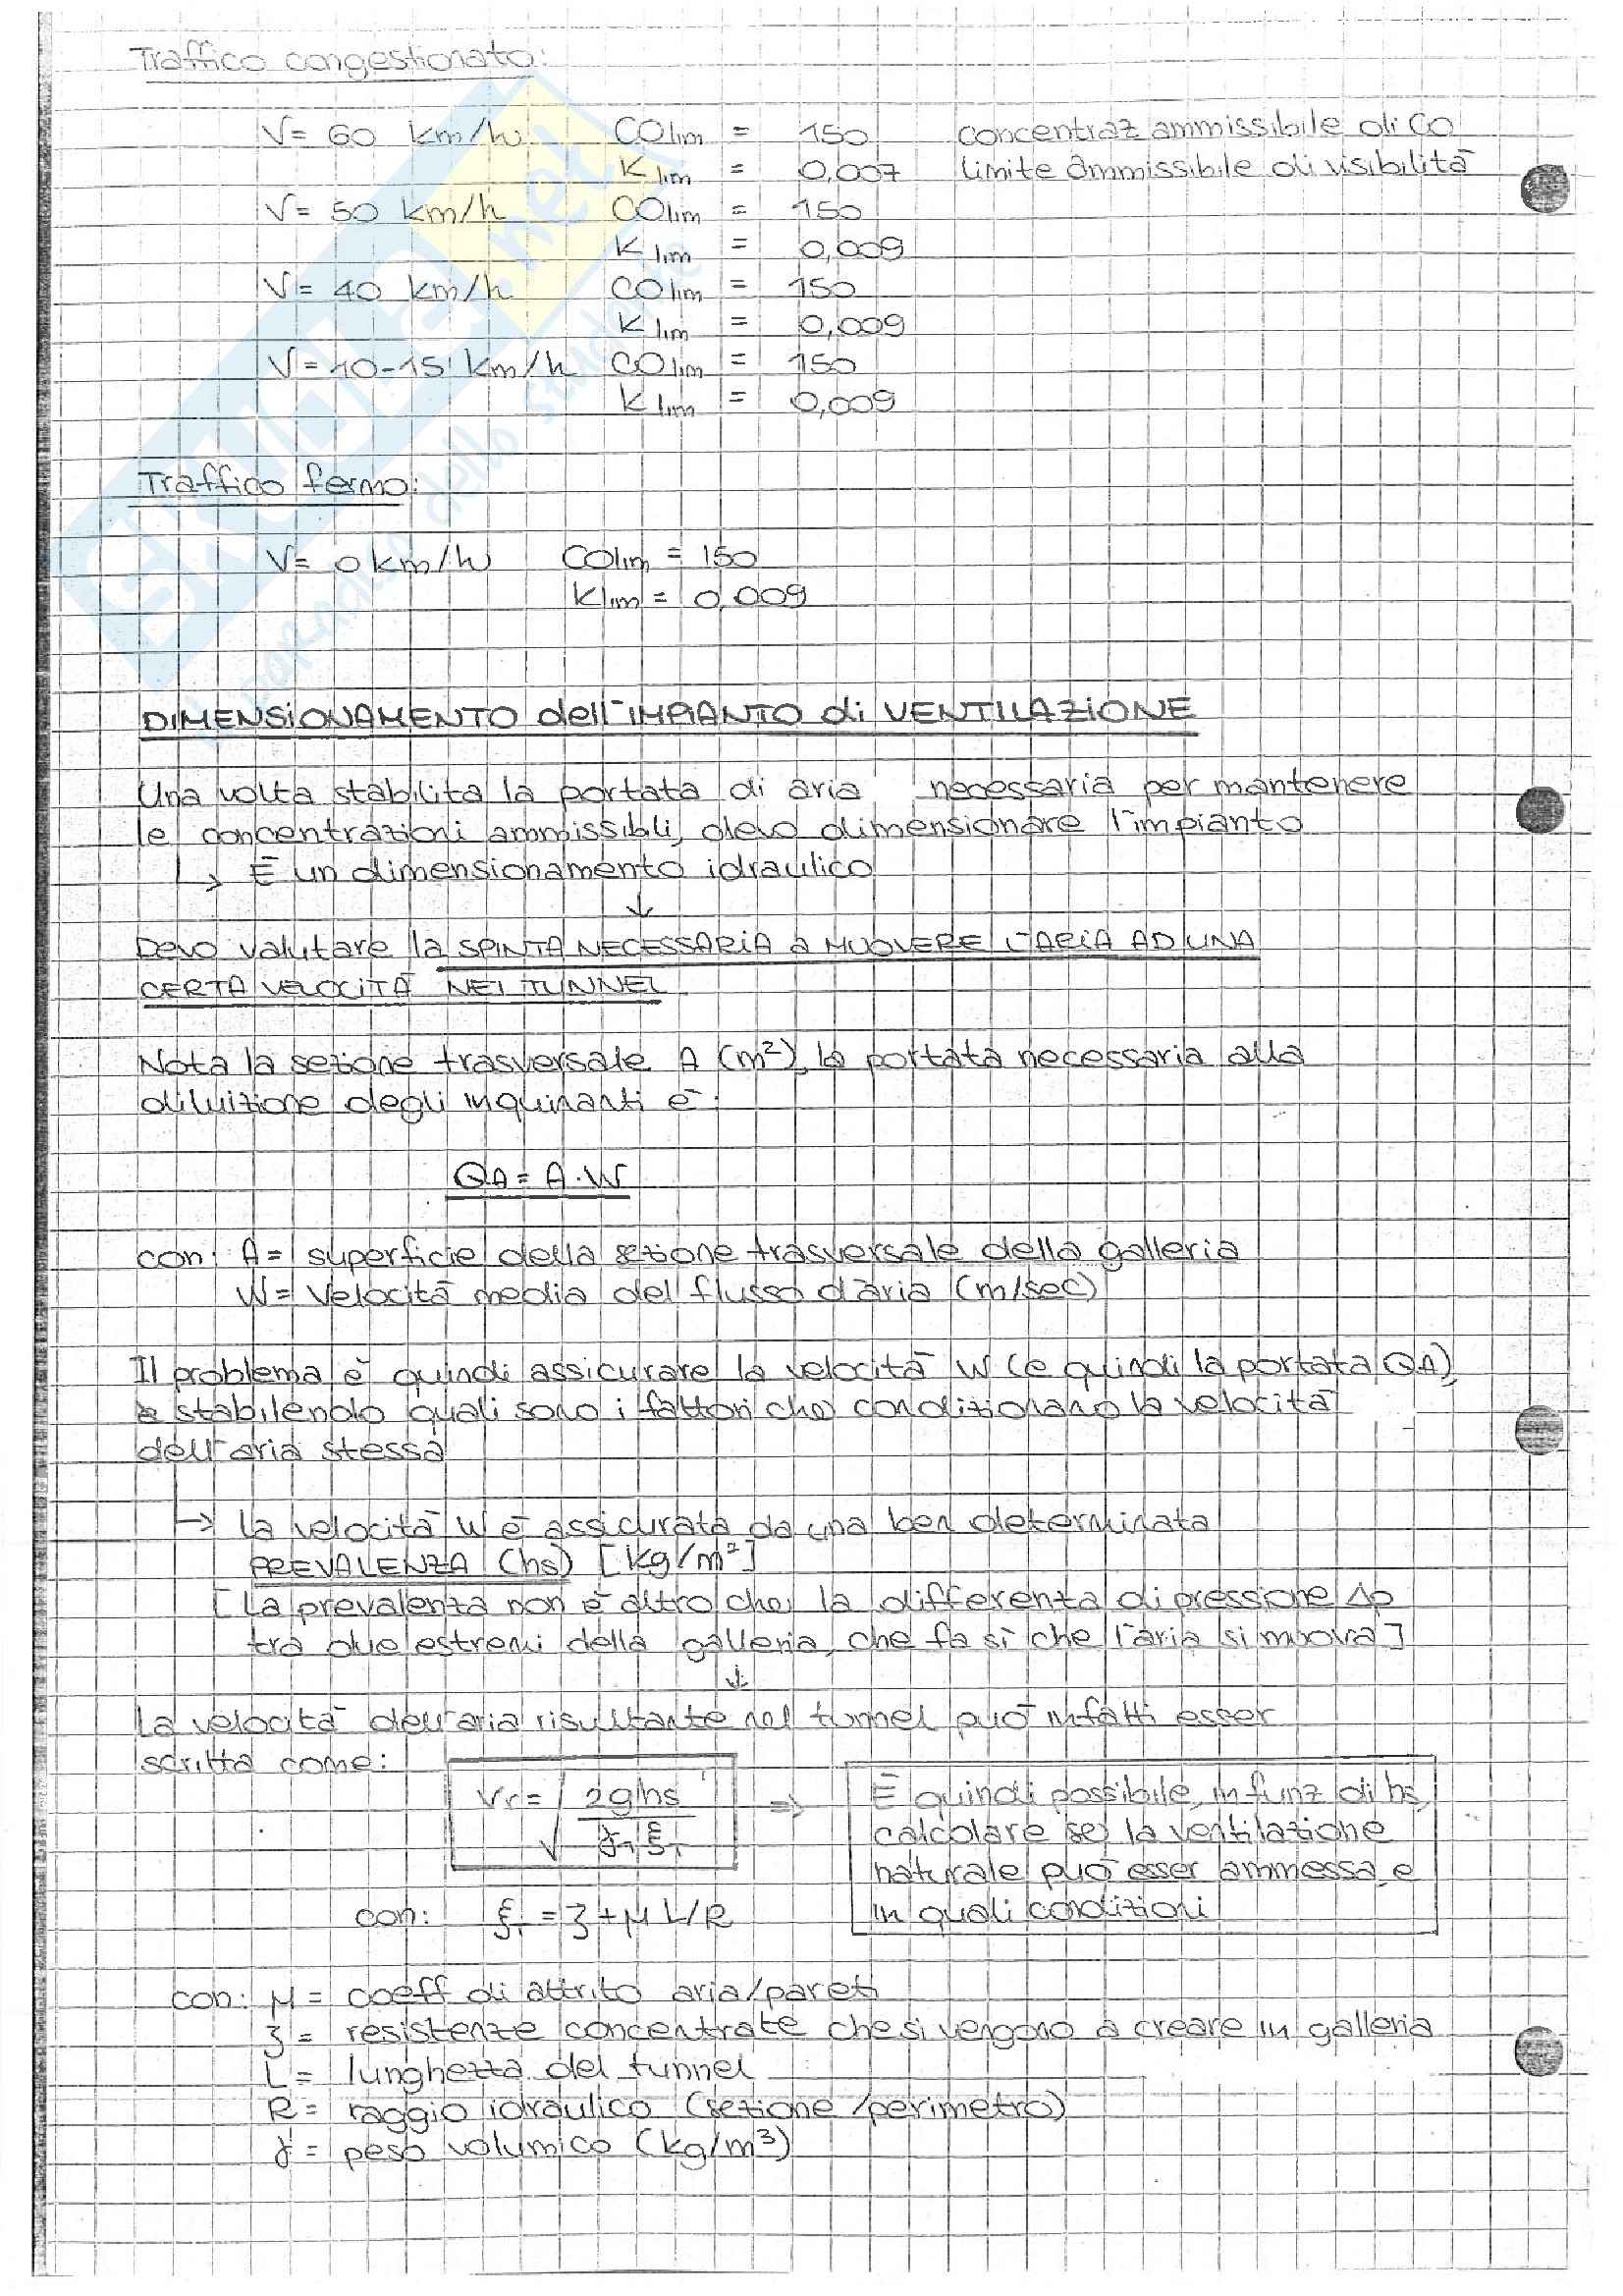 Traffico congestionato:
V= 60 km/h COlim = 150 concentraz ammissibile di CO
Klim = 0,007 limite ammissibile di visibilità
V= 50 km/h COlim = 150
Klim = 0,009
V= 40 km/h COlim = 150
Klim = 0,009
V= 10-15 km/h COlim = 150
Klim = 0,009
Traffico fermo:
V= 0 km/h COlim = 150
Klim = 0,009
DIMENSIONAMENTO dell'IMPIANTO di VENTILAZIONE
Una volta stabilita la portata di aria necessaria per mantenere
le concentrazioni ammissibili, devo dimensionare l'impianto
↳ È un dimensionamento idraulico
↓
Devo valutare la SPINTA NECESSARIA a MUOVERE L'ARIA AD UNA
CERTA VELOCITÀ NEL TUNNEL
Nota la sezione trasversale A (m²), la portata necessaria alla
diluizione degli inquinanti è:
QA = A·W
con: A = superficie della sezione trasversale della galleria
W = Velocità media del flusso d'aria (m/sec)
Il problema è quindi assicurare la velocità W (e quindi la portata QA),
stabilendo quali sono i fattori che condizionano la velocità
dell'aria stessa
↳ la velocità W è assicurata da una ben determinata
PREVALENZA (hs) [kg/m²]
[La prevalenza non è altro che la differenza di pressione Δp
tra due estremi della galleria, che fa sì che l'aria si muova]
↓
La velocità dell'aria risultante nel tunnel può infatti esser
scritta come:
Vr = √(2ghs / γ1 ξ1) ⇒ È quindi possibile, in funz di hs,
calcolare se la ventilazione
naturale può esser ammessa e
in quali condizioni
con: ξ1 = ζ + μ L/R
con: μ = coeff di attrito aria/pareti
ζ = resistenze concentrate che si vengono a creare in galleria
L = lunghezza del tunnel
R = raggio idraulico (sezione/perimetro)
γ = peso volumico (kg/m³)